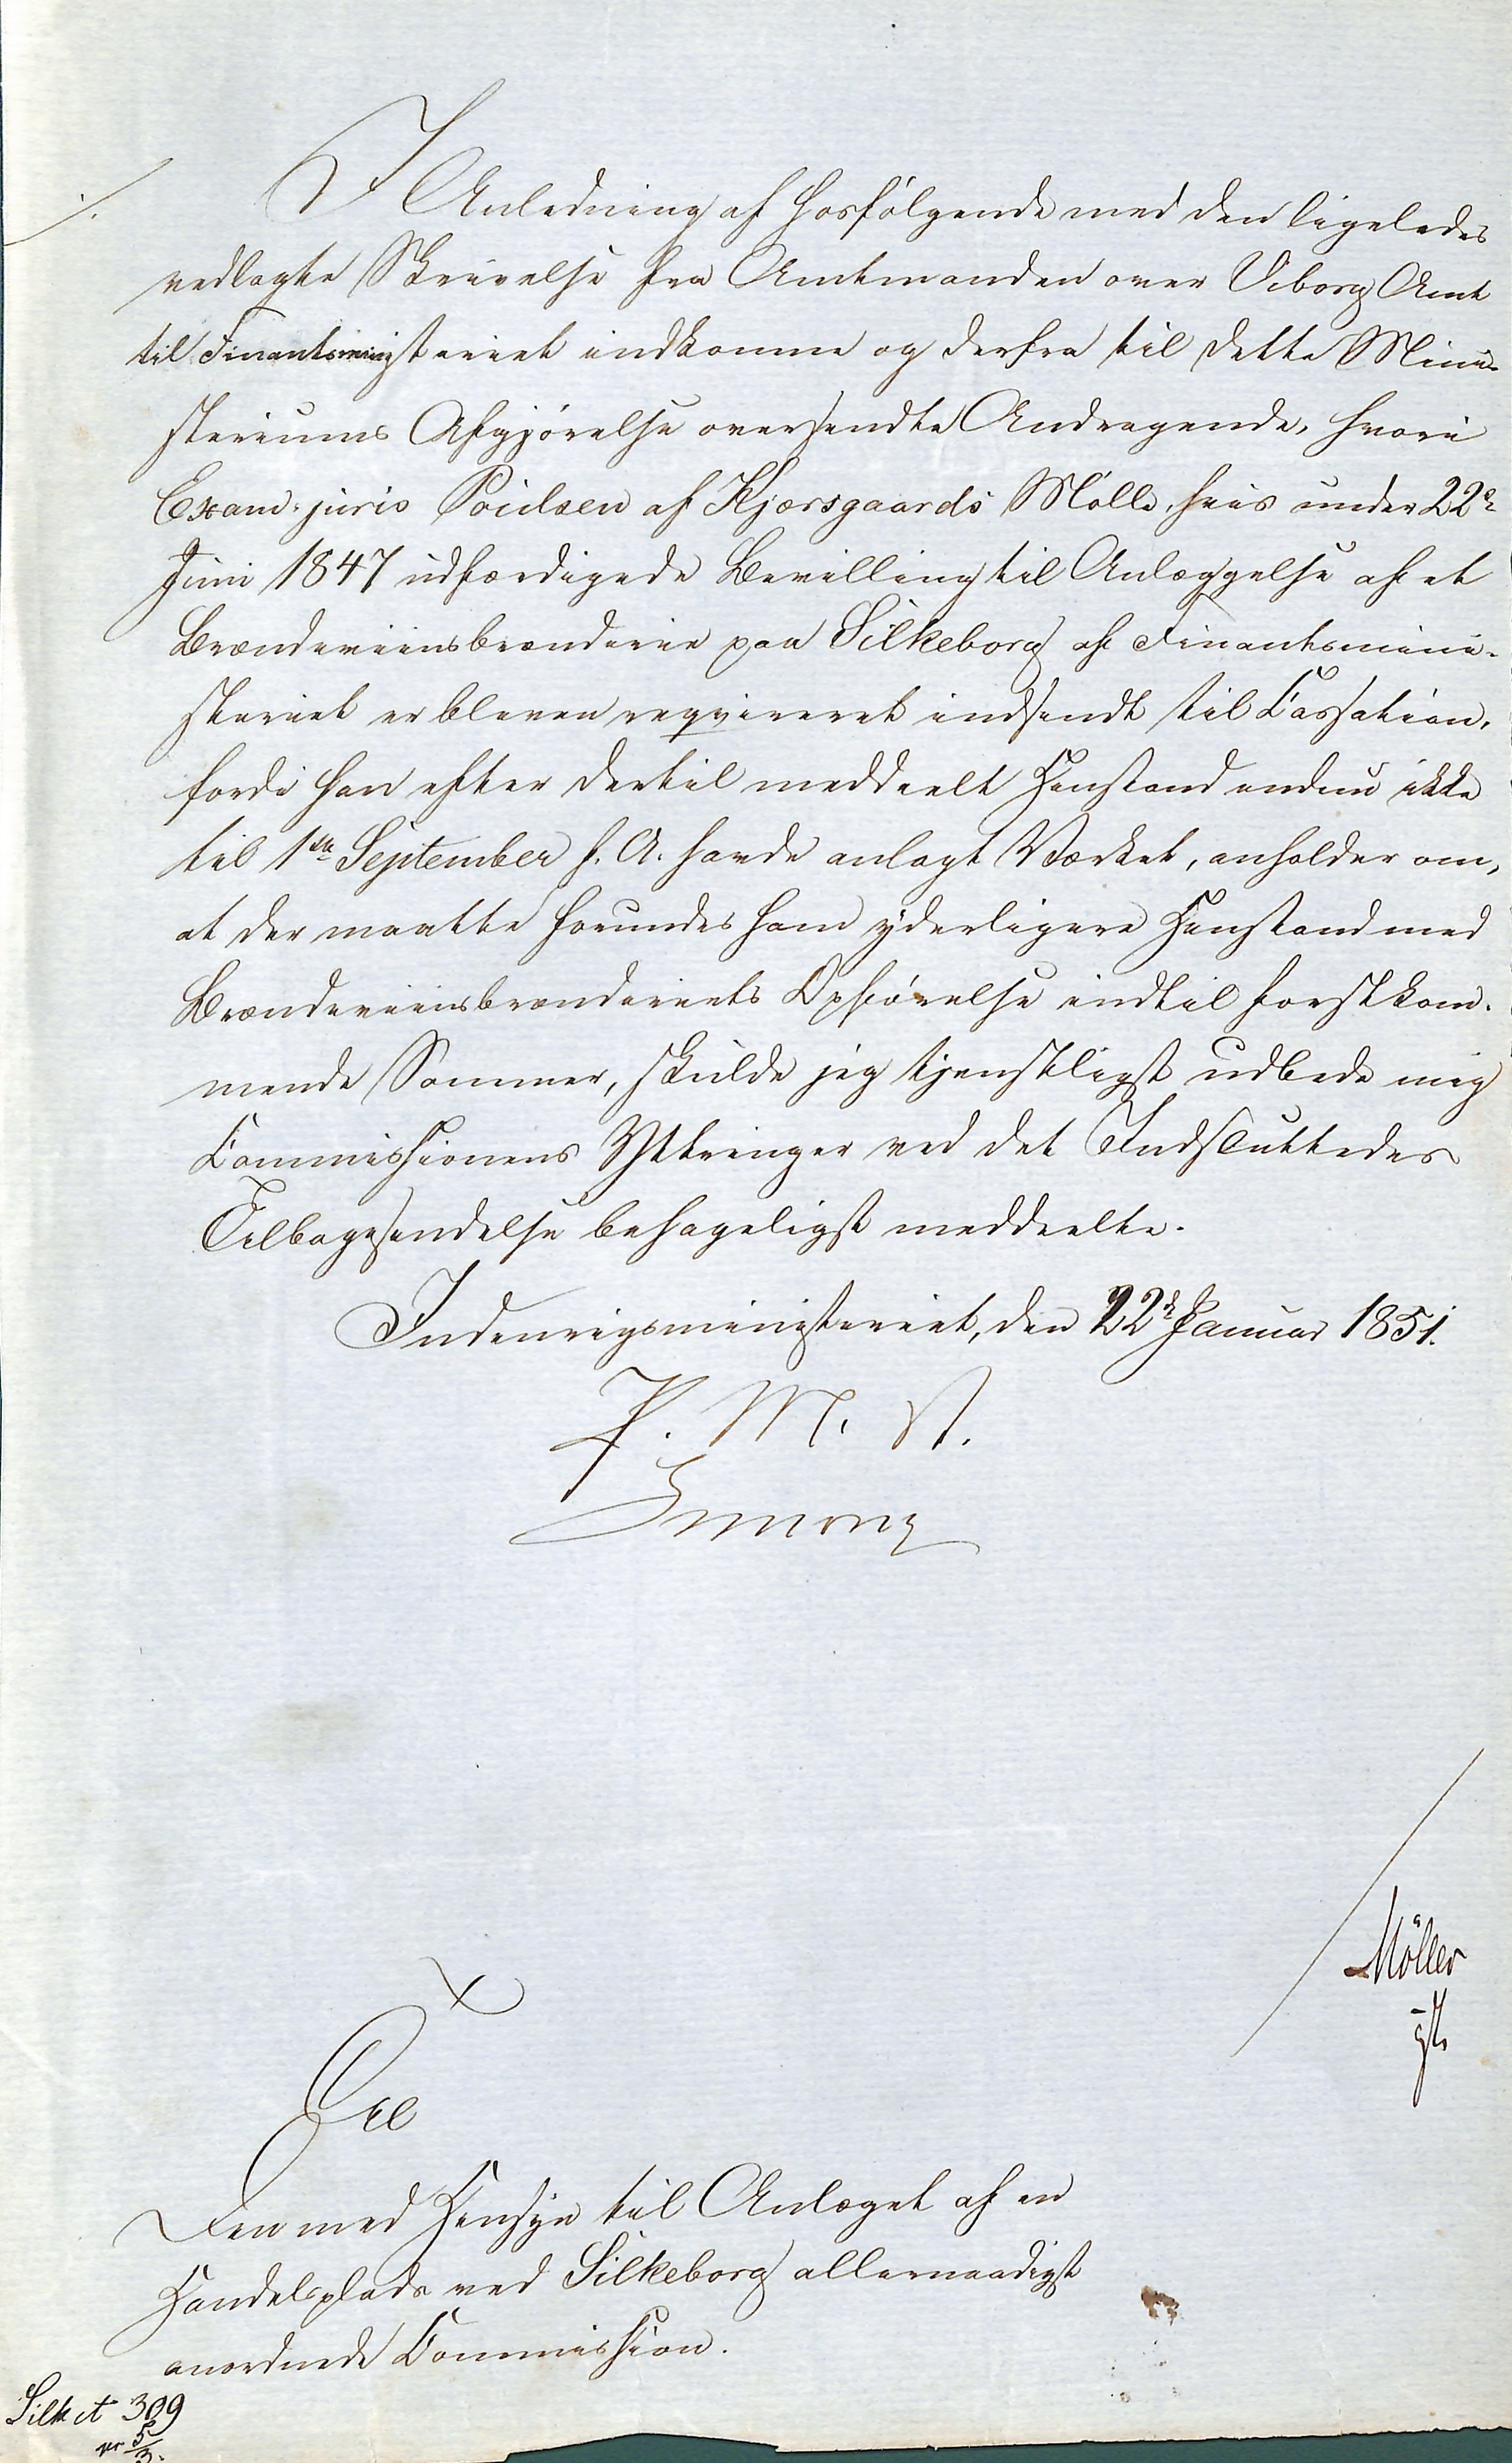 I Anledning af hosfølgende med den ligeledes
vedlagte Skrivelse fra Amtmanden over Viborg Amt
til Finantsministeriet indkomne og derfra til dette Mini-
steriums Afgjørelse oversendte Andragende, hvori
Exam. juris Poulsen af Kjærsgaards Mølle, hvis under 22de
Juni 1847 udfærdigede Bevilling til Anlæggelse af et
Brændeviinsbrænderie paa Silkeborg af Finantsmini-
steriet er bleven reqvireret indsendt til Cassation,
fordi han efter dertil meddeelt Henstand endnu ikke
til 1ste September f. A. havde anlagt Værket, anholder om,
at der maatte forundes ham yderligere Henstand med
Brændeviinsbrænderiets Opførelse indtil førstkom-
mende Sommer, skulde jeg tjenstligst udbede mig
Commissionens Yttringer ved det Indsluttedes
Tilbagesendelse behageligst meddeelte.
Indenrigsministeriet, den 22de Januar 1851.
P. M. V.
Simony
Møller
Til
Den med Hensyn til Anlæget af en
Handelsplads ved Silkeborg allernaadigst
anordnede Commission.
Silk ct 309
pr 5/3.